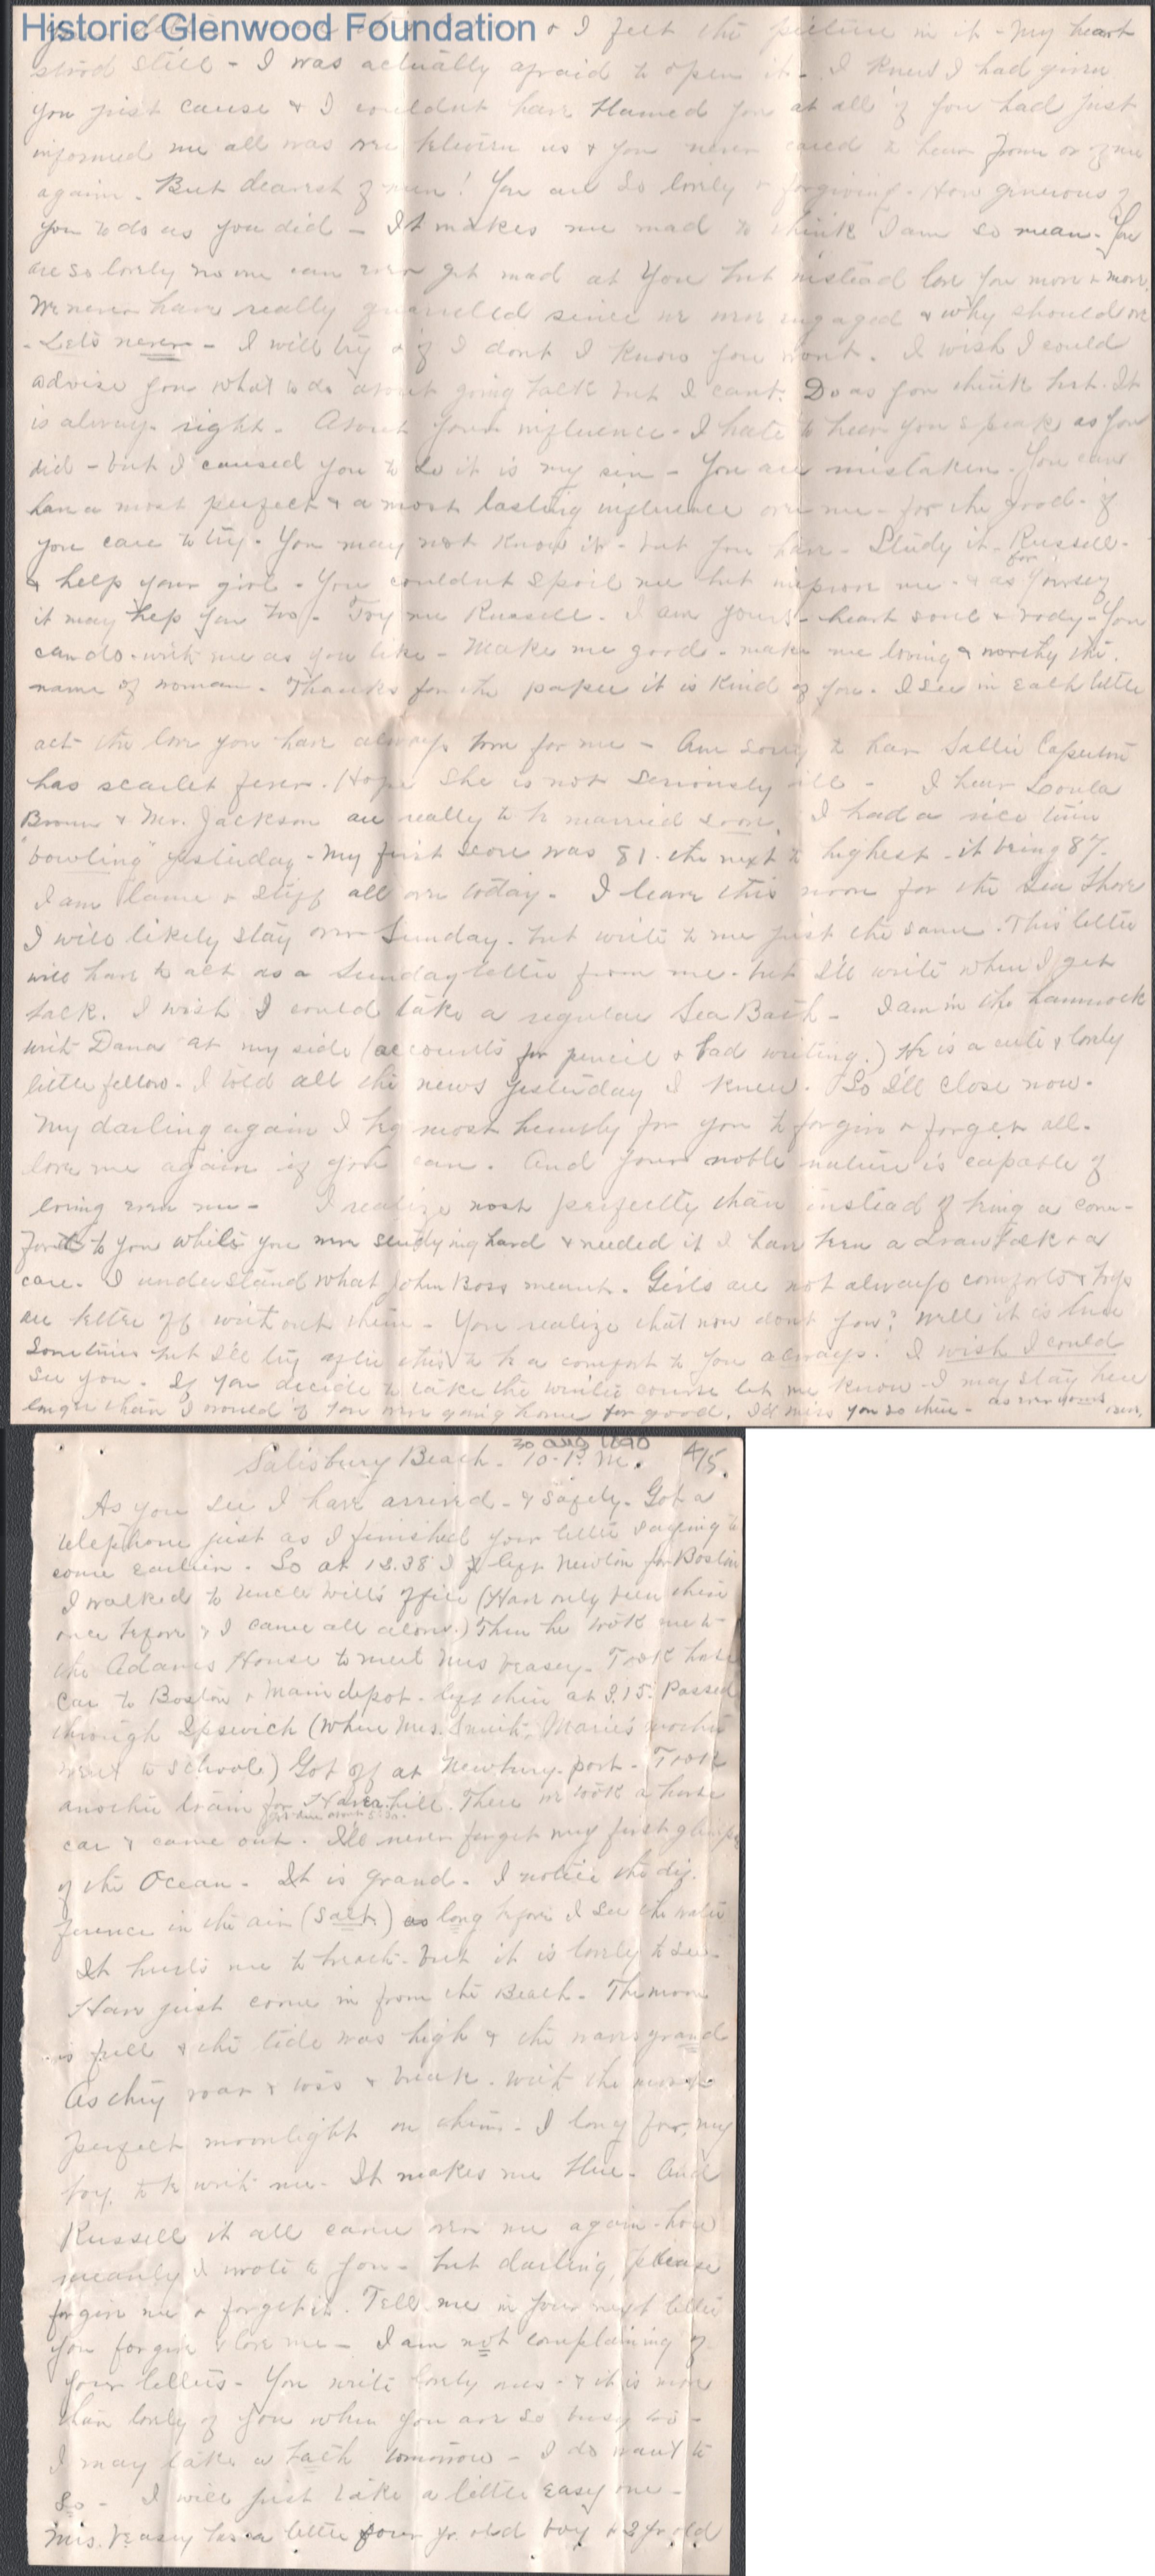 Historic Glenwood Foundation
& I felt the picture in it - My heart
stood still - I was actually afraid to open it - I knew I had given
you just cause & I couldn't have blamed you at all if you had just
informed me all was over between us & you never cared to hear from or of me
again. But dearest of men! You are so lovely & forgiving. How generous of
you to do as you did - It makes me mad to think I am so mean. You
are so lovely no one can ever get mad at you but instead love you more & more.
We never have really quarrelled since we were engaged & why should we
- Let's never - I will try & if I dont I know you wont. I wish I could
advise you what to do about going back but I cant. Do as you think best. It
is always right. About your influence - I hate to hear you speak as you
did - but I caused you to so it is my sin - You are mistaken. You can
have a most perfect & a most lasting influence over me - for the good - if
you care to try. You may not know it - but you have - Study it - Russell -
& help your girl - You couldnt spoil me but improve me - & as for yourself
it may help you too - Try me Russell. I am yours - heart soul & body - You
can do with me as you like - Make me good - make me loving & worthy the
name of woman. Thanks for the paper it is kind of you. I see in each little
act the love you have always bore for me - Am sorry to hear Sallie Caperton
has scarlet fever. Hope she is not seriously ill - I hear Loula
Brown & Mr. Jackson are really to be married soon. I had a nice time
"bowling" yesterday - my first score was 81 - the next to highest - it being 87.
I am lame & stiff all over today - I leave this noon for the Sea Shore
I will likely stay over Sunday - but write to me just the same. This letter
will have to act as a Sunday letter from me - but I'll write when I get
back. I wish I could take a regular Sea Bath - I am in the hammock
with Dana at my side (accounts for pencil & bad writing.) He is a cute & lovely
little fellow. I told all the news yesterday I knew. So I'll close now.
My darling again I beg most humbly for you to forgive & forget all.
love me again if you can. And your noble nature is capable of
loving even me - I realize most perfectly than instead of being a com-
fort to you while you were studying hard & needed it I have been a drawback & a
care. I understand what John Ross meant. Girls are not always comforts & boys
are better off without them - You realize that now dont you? Well it is true
Sometimes but I'll try after this to be a comfort to you always. I wish I could
See you. If you decide to take the winter course let me know - I may stay here
longer than I would if you were going home for good. I'll miss you so there - as ever yours
30 Aug 1890
Salisbury Beach. 10 - P. M. 4/5.
As you see I have arrived - & safely. Got a
telephone just as I finished your letter saying to
come earlier. So at 12.38 I left Newton for Boston
I walked to Uncle Will's office (Have only been there
once before & I came all alone.) Then he took me to
the Adams House to meet Mrs Veasey - Took horse
car to Boston & Main depot - left there at 3.15. Passed
through Ipswich (where Mrs. Smith, Marie's mother
went to school) Got off at Newbury port - Took
another train for Haverhill. There we took a horse
car & came out. I'll never forget my first glimpse
of the Ocean - It is grand. I notice the dif-
ference in the air (Salt) as long before I see the water
It hurts me to breath - but it is lovely to see.
Have just come in from the Beach - The moon
is full & the tide was high & the waves grand
As they roar & toss & break - with the most
perfect moonlight on them - I long for my
boy to be with me - It makes me blue - And
Russell it all came over me again - how
meanly I wrote to you - but darling, please
forgive me & forget it. Tell me in your next letter
you forgive & love me - I am not complaining of
your letters - You write lovely ones - & it is more
than lovely of you when you are so busy too -
I may take a bath tomorrow - I do want to
so - I will just take a little easy one -
Mrs. Veasey has a little four yr. old boy & 2 yr old